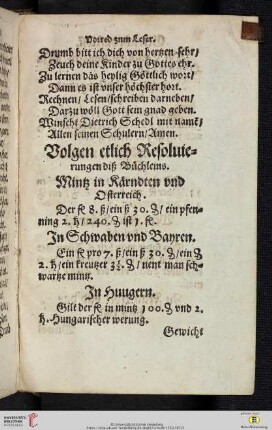 Vorred zum Leser.
Drumb bitt ich dich von hertzen sehr/
Zeuch deine Kinder zu Gottes ehr.
Zu lernen das heylig Göttlich wort/
Dann es ist vnser höchster hort.
Rechnen/ Lesen/ schreiben darneben/
Darzu wöll Gott sein gnad geben.
Wünscht Dietrich Schedl mit namē/
Allen seinen Schulern/ Amen.
Volgen etlich Resoluie-
rungen diß Büchleins.
Mintz in Kärndten vnd
Osterreich.
Der fl 8. ß/ ein ß 30. ₰/ ein pfen-
ning 2. h/ 240. ₰ ist 1. fl.
In Schwaben vnd Bayren.
Ein fl pro 7. ß/ ein ß 30. ₰/ ein ₰
2. h/ ein kreutzer 3½. ₰/ nent man sch-
wartze mintz.
In Hungern.
Gilt der fl in mintz 100. ₰ vnd 2.
h. Hungarischer werung.
Gewicht